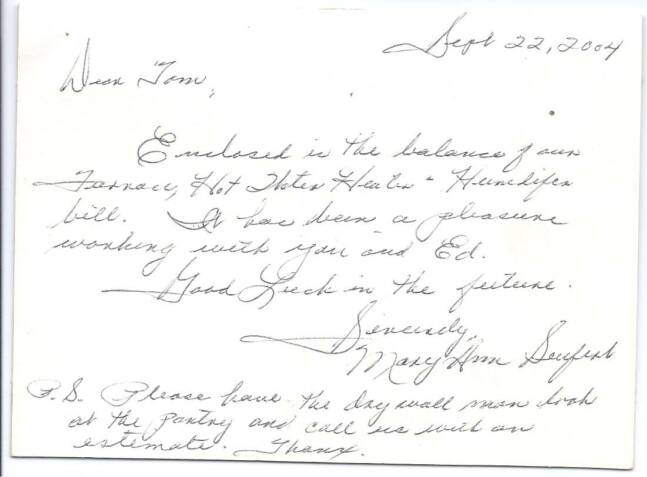 Sept 22, 2004
Dear Tom,
Enclosed is the balance of our
Furnace, Hot Water Heater & Humidifer
bill. It has been a pleasure
working with you and Ed.
Good Luck in the future.
Sincerely,
Mary Ann Seufert
P.S. Please have the dry wall man look
at the pantry and call us with an
estemate. Thanx.